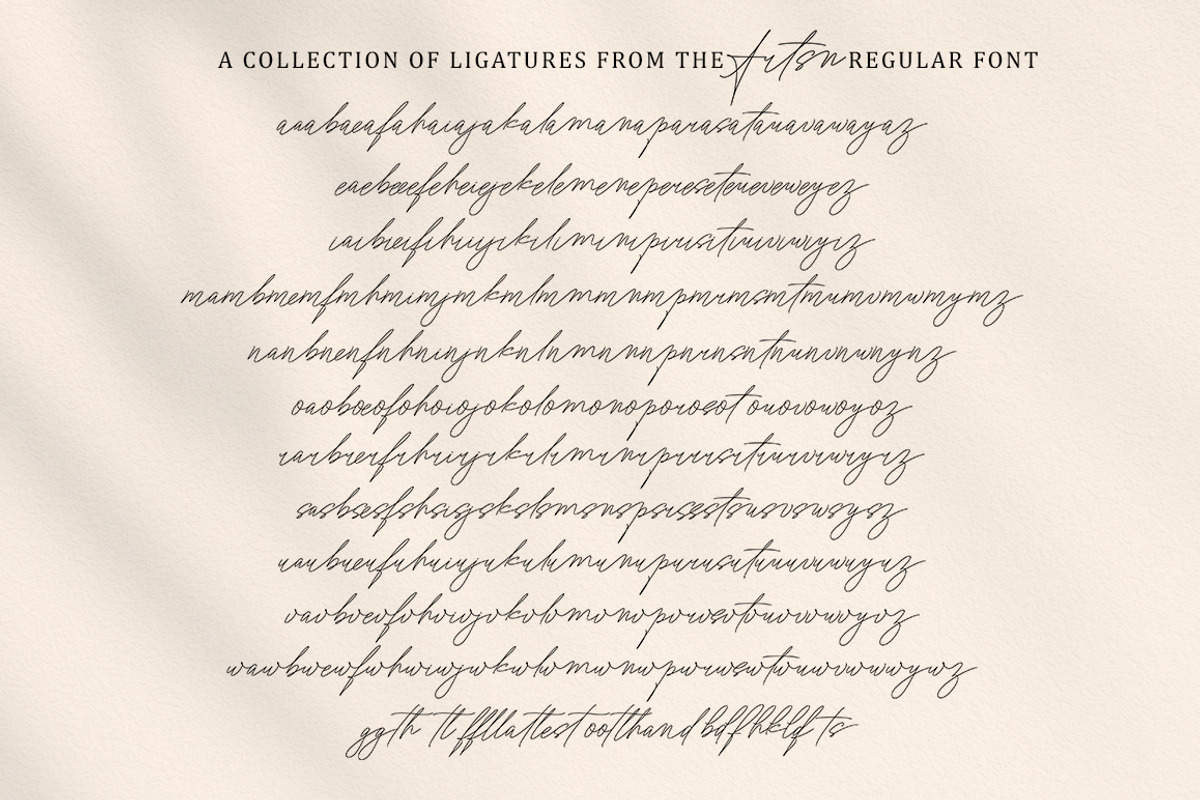 A COLLECTION OF LIGATURES FROM THE Artsn REGULAR FONT
aaabaeafahaiajakalamanaparasatauavawayaz
eaebeeefeheiejekelemenepereseteueveweyez
iaibieifihiijikiliminipirisitiuiviwiyiz
mambmemfmhmimjmkmlmmmnmpmrmsmtmumvmwmymz
nanbnenfnhninjnknlnmnnnpnrnsntnunvnwnynz
oaoboeofohoiojokolomonoporosot ouovowoyoz
rarbrerfrhrirjrkrlrmrnrprrrsrtrurvrwryrz
sasbsesfshsisjskslsmsnspsrssstsusvswsysz
uaubueufuhuiujukulumunupurusutuuuvuwuyuz
vavbvevfvhvivjvkvlvmvnvpvrvsvtvuvvvwvyvz
wawbwewfwhwiwjwkwlwmwnwpwrwswtwuwvwwwywz
ggth tl ffllattest oottthand bdfhklqf ts